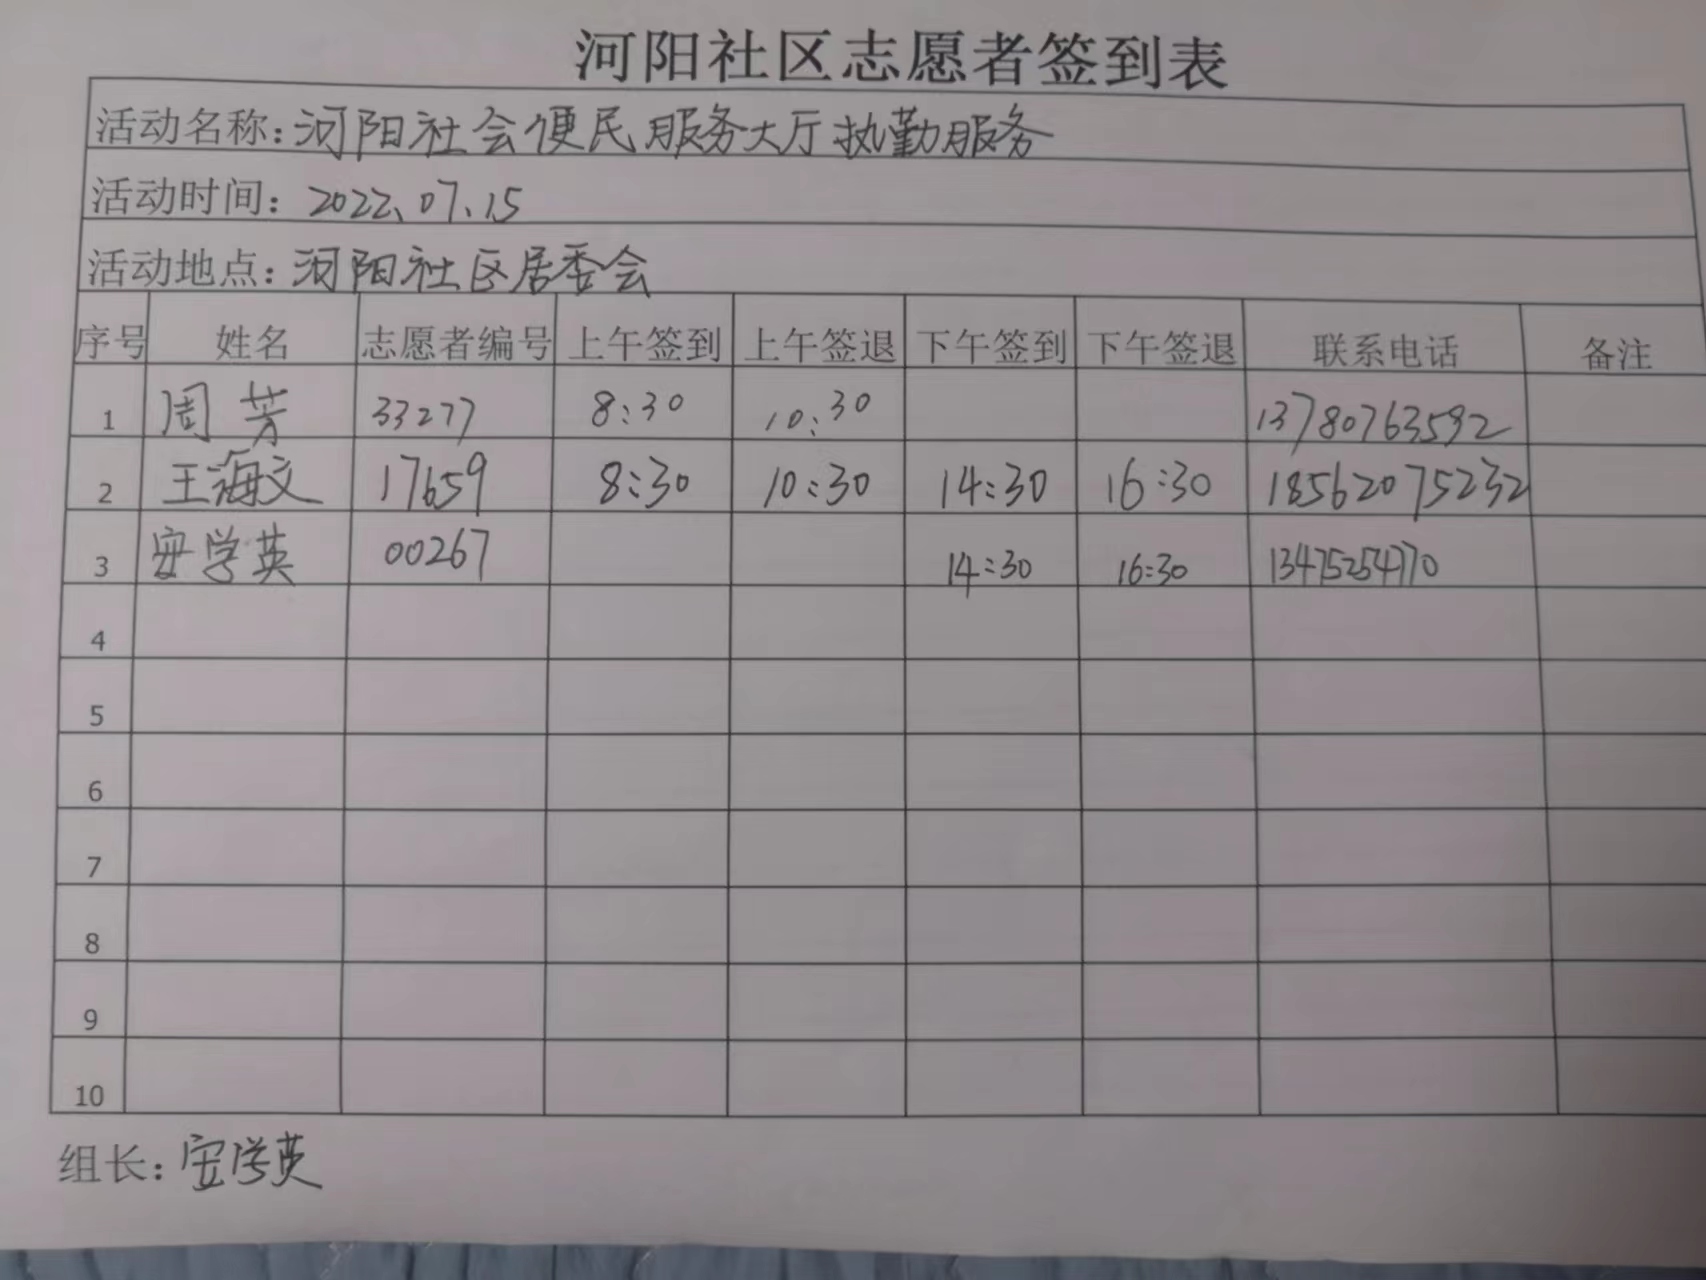 河阳社区志愿者签到表
活动名称:河阳社会便民服务大厅执勤服务
活动时间: 2022、07、15
活动地点:河阳社区居委会
序号 姓名 志愿者编号 上午签到 上午签退 下午签到 下午签退 联系电话 备注
1 周芳 33277 8:30 10:30 13780763592
2 王海文 17659 8:30 10:30 14:30 16:30 18562075232
3 安学英 00267 14:30 16:30 13475254770
4
5
6
7
8
9
10
组长:安学英